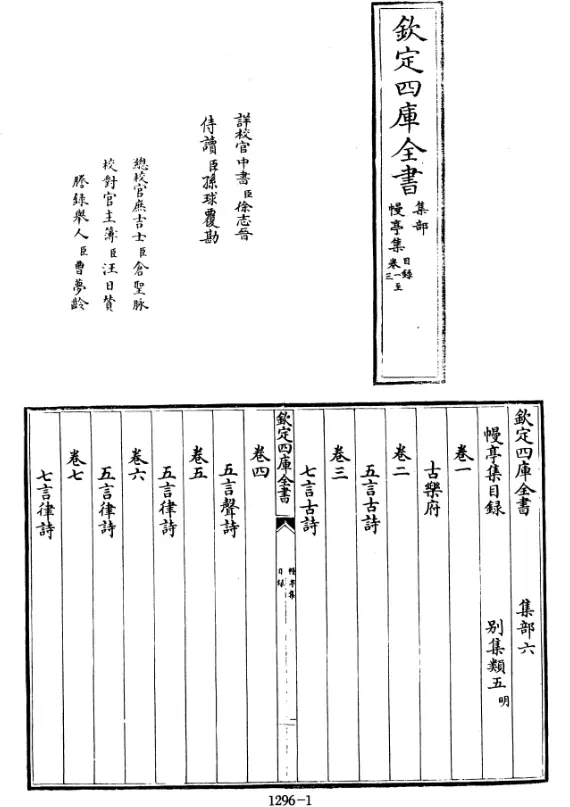 欽定四庫全書
集部
幔亭集
目錄
卷一至
三
詳校官中書臣徐志晉
侍讀臣孫球覆勘
總校官庶吉士臣倉聖脈
校對官主簿臣汪日贊
謄錄舉人臣曹夢齡
欽定四庫全書 集部六
幔亭集目錄 別集類五明
卷一
古樂府
卷二
五言古詩
卷三
七言古詩
欽定四庫全書
幔亭集
目錄
一
卷四
五言聲詩
卷五
五言律詩
卷六
五言律詩
卷七
七言律詩
1296-1